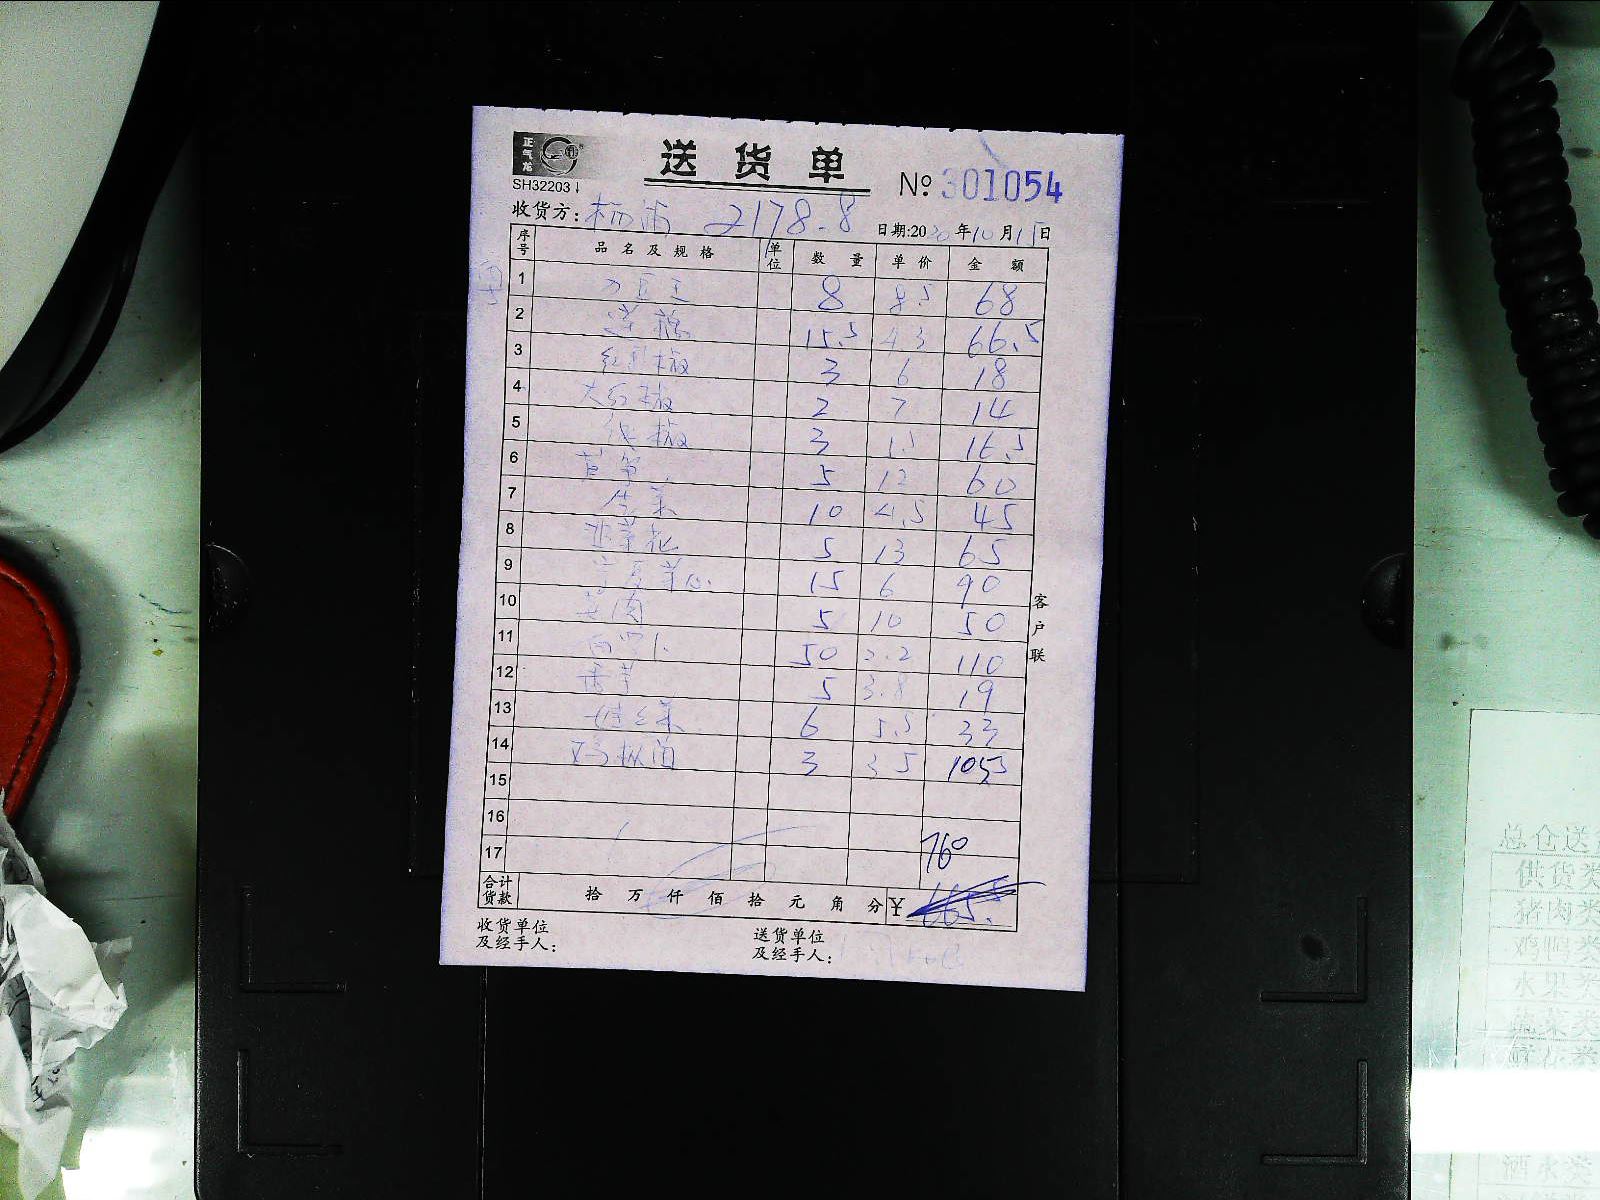 正气龙
送货单
SH32203↓
№ 301054
收货方: 杨浦 2178.8
日期:2020年10月15日
序号 品名及规格 单位 数量 单价 金额
1 刀豆王 8 8.5 68
2 莲藕 15.5 4.3 66.5
3 红彩椒 3 6 18
4 大红椒 2 7 14
5 线椒 3 5.5 16.5
6 莴笋 5 12 60
7 生菜 10 4.5 45
8 韭菜花 5 13 65
9 宁夏菜心 15 6 90
10 5 10 50
11 50 2.2 110
12 香芋 5 3.8 19
13 6 5.5 33
14 鸡枞菌 3 35 105
15
16
17 760
合计货款 拾 万 仟 佰 拾 元 角 分 ¥ 665.5
收货单位
及经手人:
送货单位
及经手人:
客户联
总仓送
供货类
猪肉类
鸡鸭类
水果类
蔬菜类
酒水类